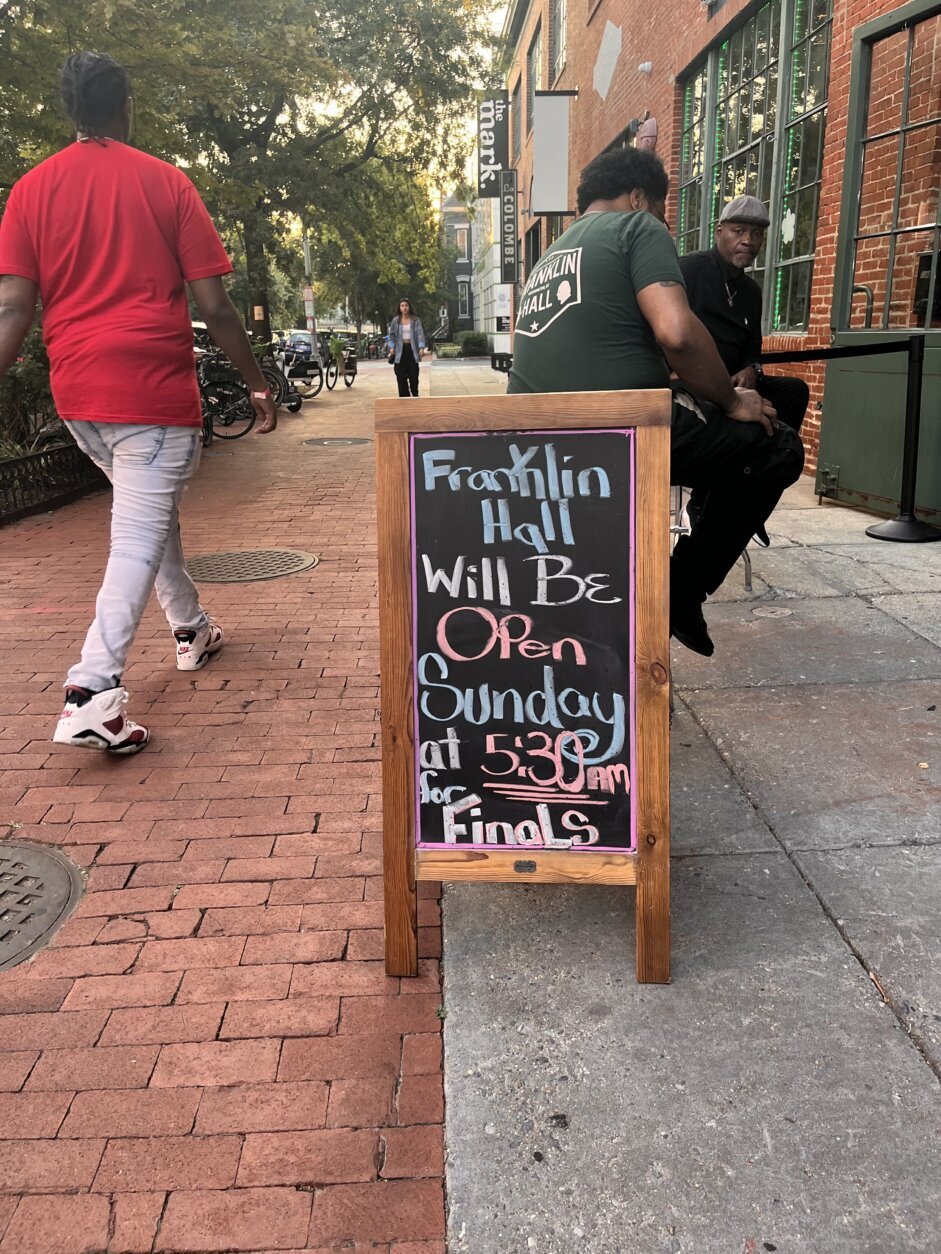 the
mark.
La COLOMBE
FRANKLIN
HALL
Franklin
Hall
Will BE
OPen
Sunday
at 5:30AM
for
FinaLs